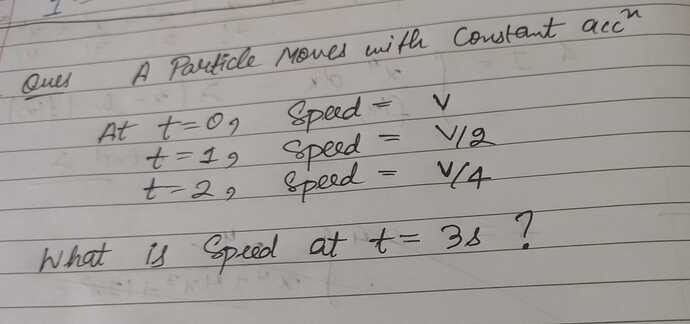 Ques A Particle Moves with Constant accⁿ
At t=0, Speed = v
t=1, Speed = v/2
t=2, Speed = v/4
What is Speed at t= 3s ?